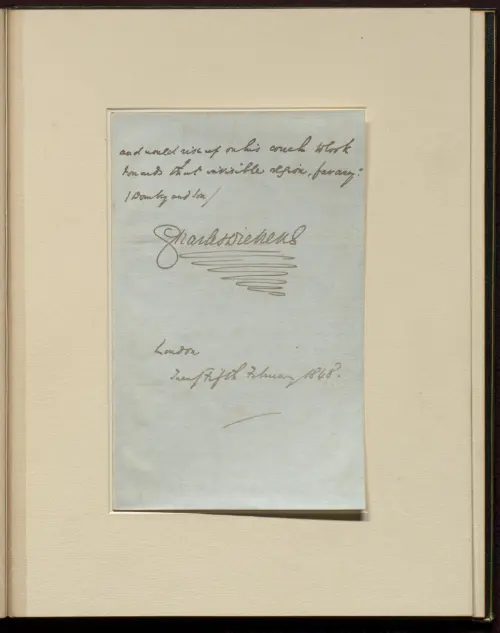 and would rise up on his couch to look
towards that invisible region, far away."
(Dombey and Son)
Charles Dickens
London
Twenty Fifth February 1848.